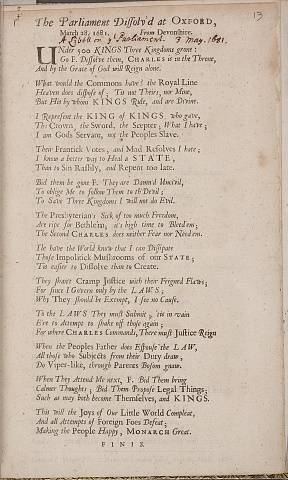 13
The Parliament Dissolv'd at OXFORD,
March 28. 1681. From Devonshire.
A Libell on ye Parliament. 3 May. 1681.
UNder 600 KINGS Three Kingdoms grone:
Go F. Dissolve them, CHARLES is in the Throne,
And by the Grace of God will Reign alone.
What would the Commons have? the Royal Line
Heaven does dispose of; 'Tis not Theirs, nor Mine,
But His by whom KINGS Rule, and are Divine.
I Represent the KING of KINGS who gave,
The Crown, the Sword, the Scepter, What I have;
I am Gods Servant, not the Peoples Slave.
Their Frantick Votes, and Mad Resolves I hate;
I know a better way to Heal a STATE,
Than to Sin Rashly, and Repent too late.
Bid them be gone F. They are Damn'd Uncivil,
To oblige Me to follow Them to th' Devil;
To Save Three Kingdoms I will not do Evil.
The Presbyterians Sick of too much Freedom,
Are ripe for Bethle'm, it's high time to Bleed'em;
The Second CHARLES does neither Fear nor Need'em.
I'le have the World know that I can Dissipate
Those Impolitick Mushrooms of our STATE;
'Tis easier to Dissolve than to Create.
They shan't Cramp Justice with their Feigned Flaws;
For since I Govern only by the LAWS;
Why They should be Exempt, I see no Cause.
To the LAWS They must Submit, 'tis in vain
E're to Attempt to shake off those again;
For where CHARLES Commands, There must Justice Reign
When the Peoples Father does Espouse the LAW,
All those who Subjects from their Duty draw,
Do Viper-like, through Parents Bosom gnaw.
When They Attend Me next, F. Bid Them bring
Calmer Thoughts; Bid Them Propose Legal Things;
Such as may both become Themselves, and KINGS.
This will the Joys of Our Little World Compleat,
And all Attempts of Foreign Foes Defeat;
Making the People Happy, MONARCH Great.
FINIS